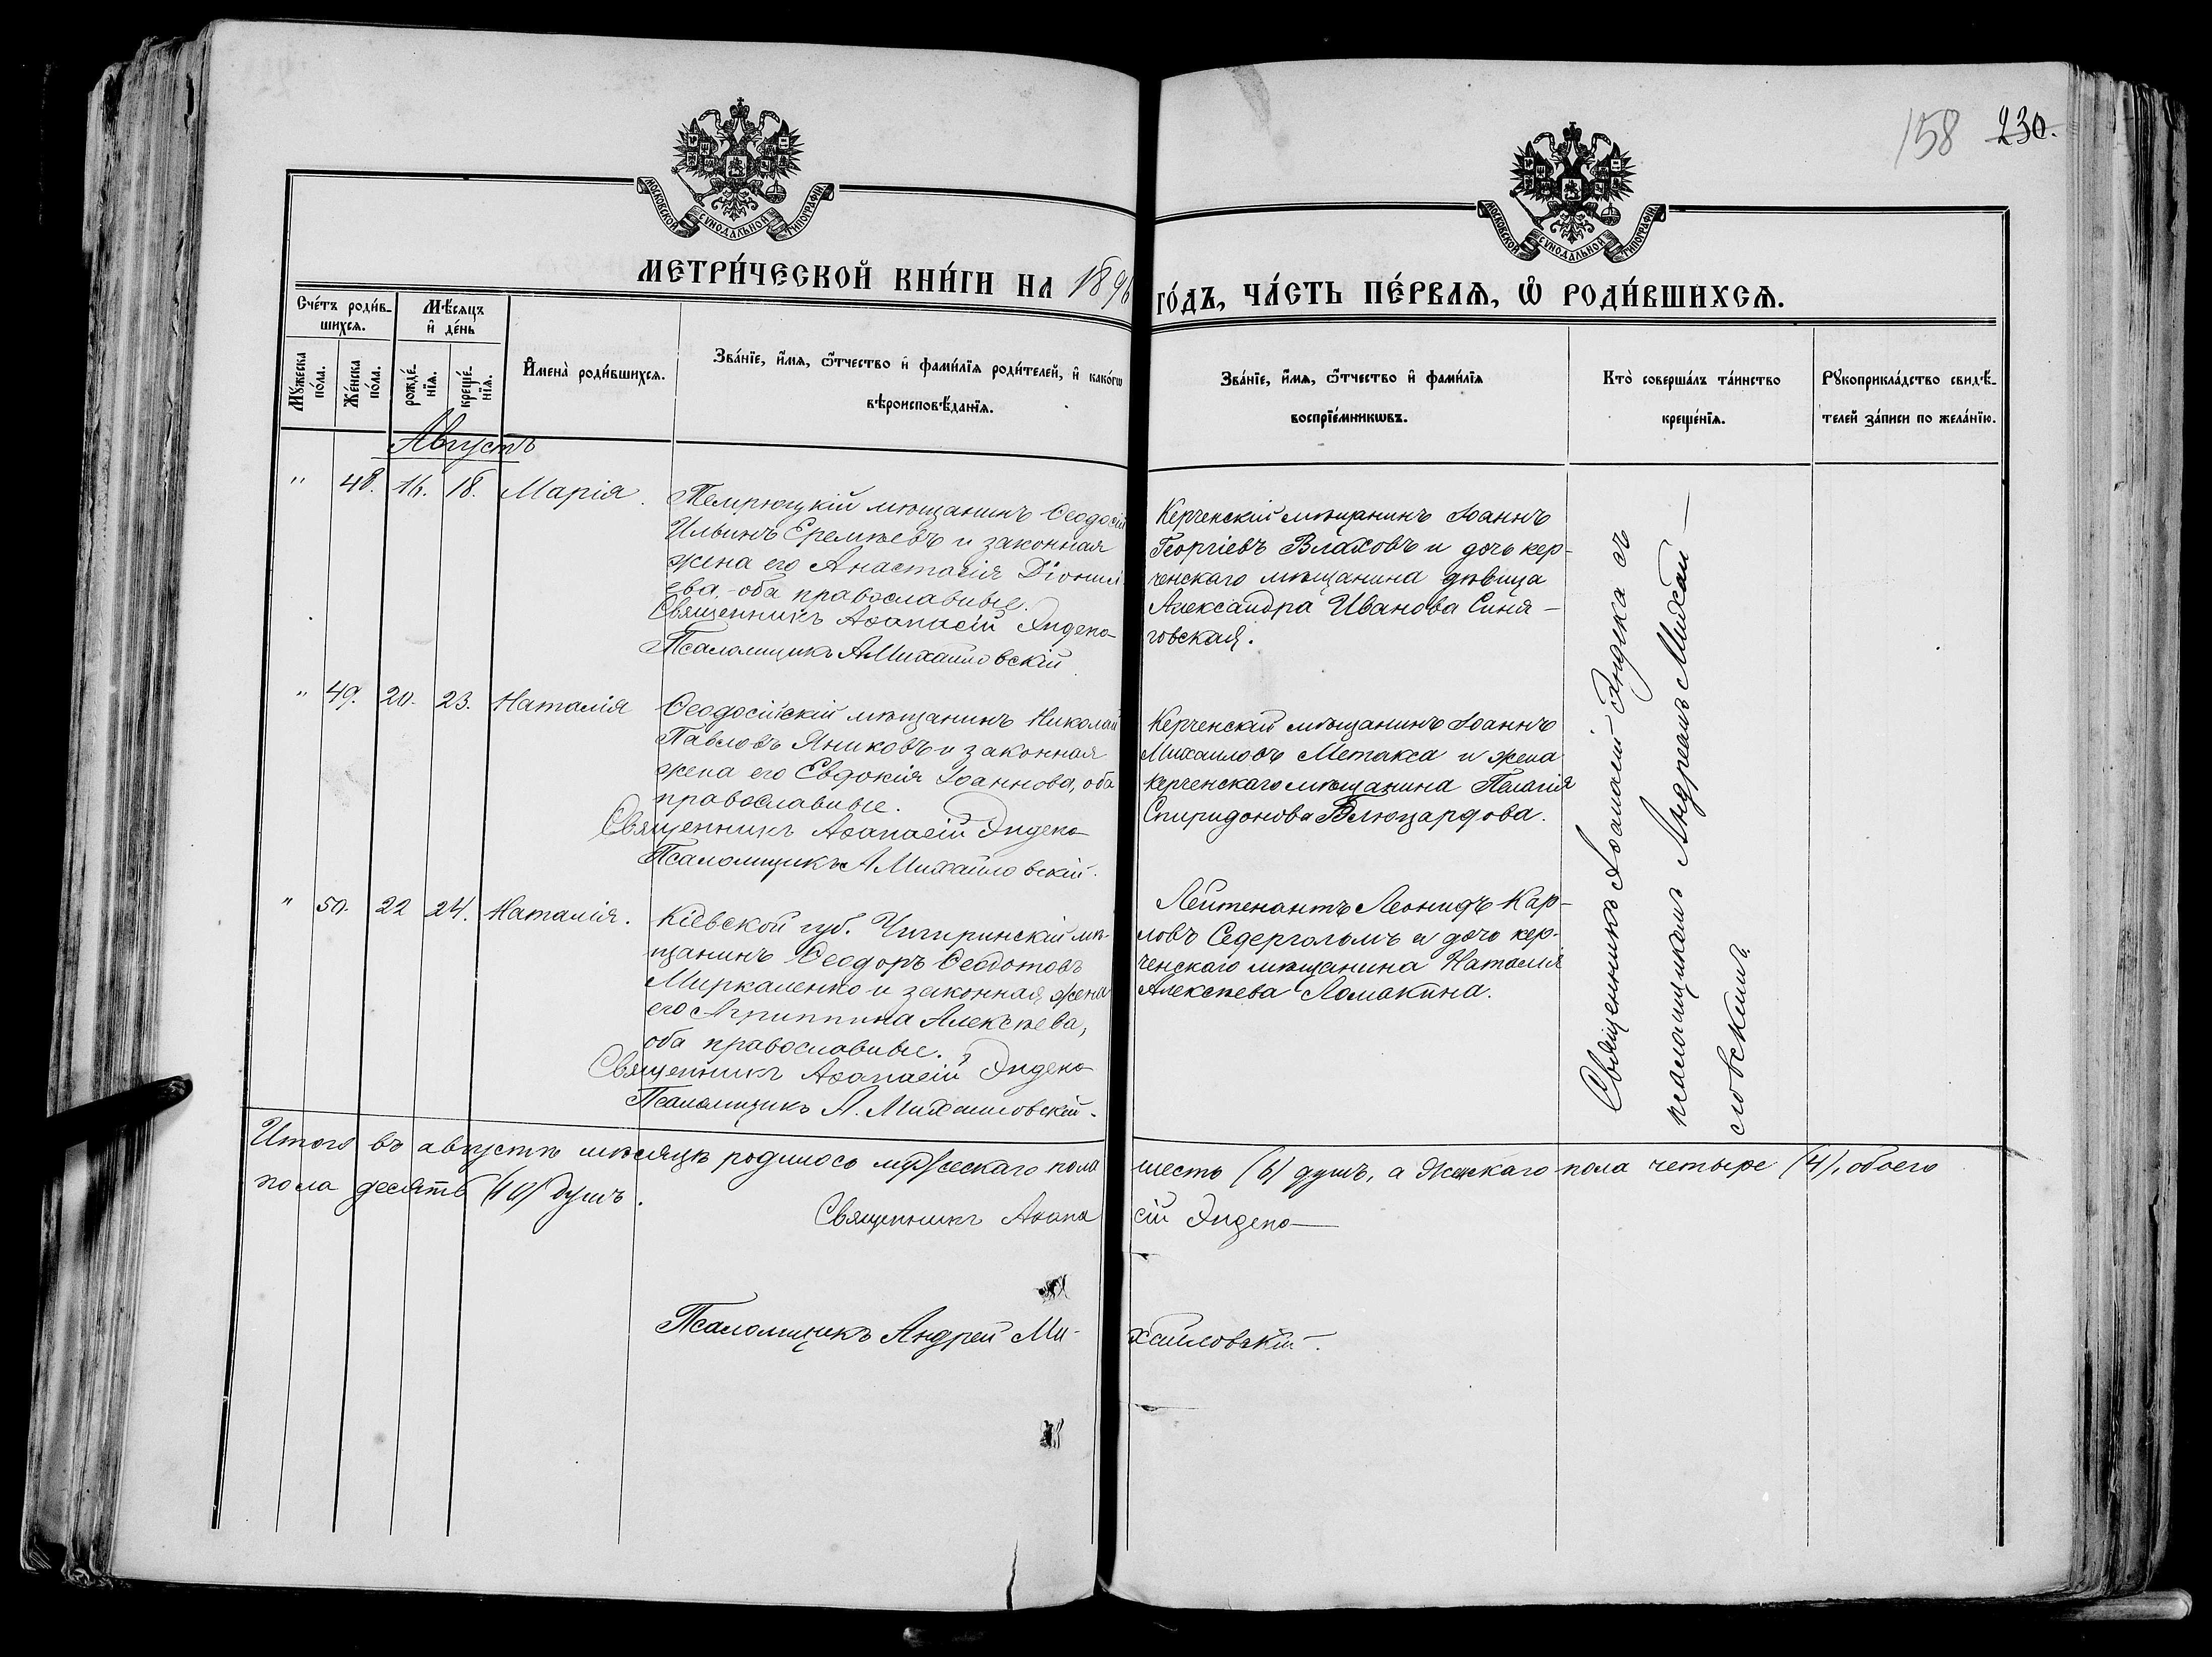 158 230.
МОСКОВСКОЙ СУНОДАЛЬНОЙ ТИПОГРАФІИ
МОСКОВСКОЙ СУНОДАЛЬНОЙ ТИПОГРАФІИ
МЕТРИ́ЧЕСКОЙ КНИ́ГИ НА 1896
ГО́ДЪ, ЧА́СТЬ ПЕ́РВАѦ, Ѡ҆ РОДИ́ВШИХСѦ.
Сче́тъ роди́в-
шихсѧ.
Мꙋ́жеска
по́ла.
Же́нска
по́ла.
Мѣ́сяцъ
и҆ де́нь
рожде́-
нїѧ.
креще́-
нїѧ.
И҆мена̀ роди́вшихсѧ.
Зва́нїе, и҆́мѧ, ѻ҆́тчество и҆ фами́лїѧ роди́телей, и҆ како́гѡ
вѣроисповѣ́данїѧ.
Зва́нїе, и҆́мѧ, ѻ҆́тчество и҆ фами́лїѧ
воспрїе́мникѡвъ.
Кто̀ соверша́лъ та́инство
креще́нїѧ.
Рꙋкоприкла́дство свидѣ́-
телей за́писи по жела́нїю.
Августъ
" 48. 16. 18. Марія.
Темрюцкій мѣщанинъ Ѳеодосій
Ильинъ Еремѣевъ и законная
жена его Анастасія Діониси
ева, - оба православные.
Священникъ Аѳанасій Эндека
Псаломщикъ А Михайловскій
Керченскій мѣщанинъ Іоаннъ
Георгіевъ Влаховъ и дочь кер-
ченскаго мѣщанина дѣвица
Александра Иванова Синя-
говская.
" 49. 20. 23. Наталія
Ѳеодосійскій мѣщанинъ Николай
Павловъ Яниковъ и законная
жена его Евдокія Іоаннова, оба
православные.
Священникъ Аѳанасій Эндека
Псаломщикъ А Михайловскій.
Керченскій мѣщанинъ Іоаннъ
Михаиловъ Метакса и жена
керченскаго мѣщанина Пелагія
Спиридонова
" 50. 22 24. Наталія.
Кіевской губ. Чигиринскій мѣ-
щанинъ Ѳеодоръ Ѳеодотовъ
Миркаленко и законная жена
его Агриппина Алексѣева,
оба православные.
Священникъ Аѳанасій Эндека
Псаломщикъ А. Михайловскій.
Лейтенантъ Леонидъ Кар-
ловъ Седергольмъ и дочь кер-
ченскаго мѣщанина Наталія
Алексѣева Ломакина.
Священникъ Аѳанасій Эндека съ
псаломщикомъ Андреемъ Михай-
ловскимъ.
Итого въ августѣ мѣсяцѣ родилось мужескаго пола шесть (6) душъ, а женскаго пола четыре (4), обоего
пола десять (10) душъ.
Священникъ Аѳана сій Эндека
Псаломщикъ Андрей Ми- хайловскій.